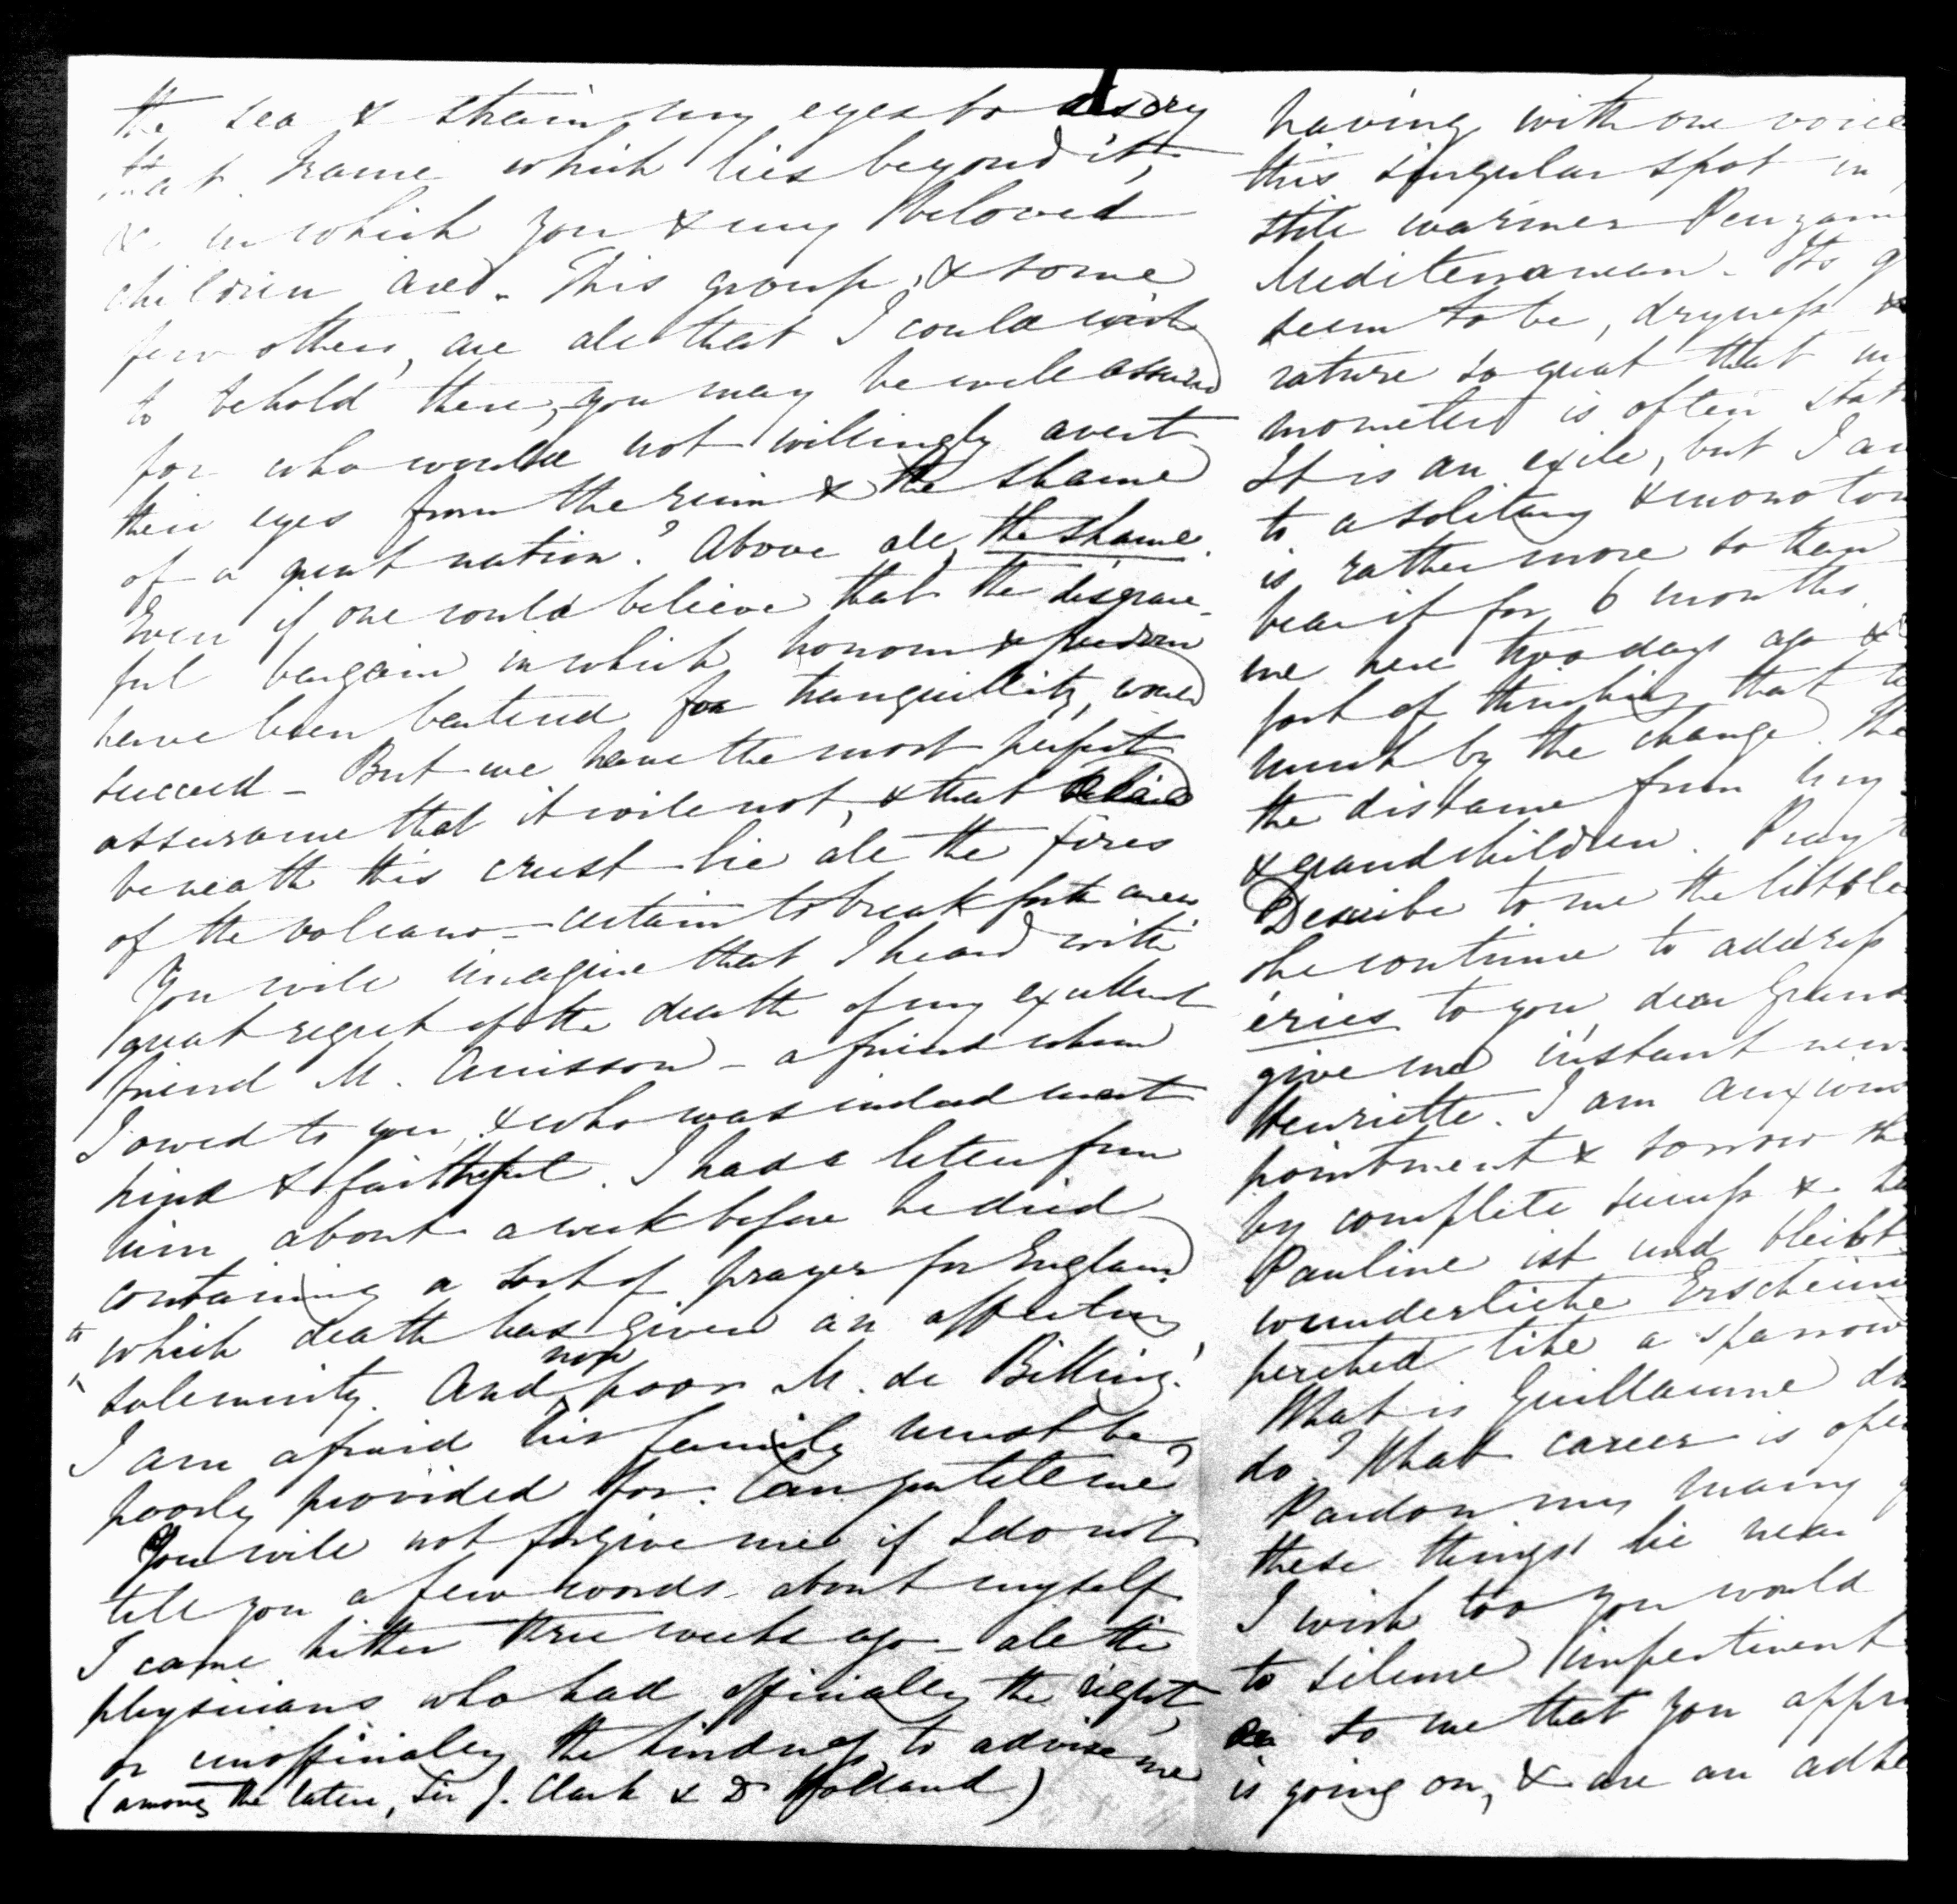 the sea & strain my eyes to descry
that France which lies beyond it,
& in which you & my beloved
children are. This group, & some
few others, are all that I could wish
to behold there, you may be well assured
for who would not willingly avert
their eyes from the ruin & the shame
of a great nation? Above all, the shame.
Even if one could believe that the disgrace-
ful bargain in which honour & freedom
have been bartered for tranquillity, would
succeed - But we have the most perfect
assurance that it will not, & that
beneath this crust lie all the fires
of the volcano - certain to break forth anew
You will imagine that I heard with
great regret of the death of my excellent
friend M. Anisson - a friend whom
I owed to you, & who was indeed most
kind & faithful. I had a letter from
him about a week before he died
containing a sort of prayer for England
which death has given an affecting
solemnity. And now poor M. de Billing!
I am afraid his family must be
poorly provided for. Can you tell me?
You will not forgive me if I do not
tell you a few words about myself
I came hither three weeks ago - all the
physicians who had officially the right,
or unofficially the kindness to advise me
(among the latter, Sir J. Clark & Dr Holland)
having with one voice
this singular spot in
still warmer Penzan
Mediterranean. Its q
seem to be, dryness &
rature so great that
mometer is often stat
It is an exile, but I am
to a solitary & monoton
is rather more so than
bear it for 6 months.
me here two days ago &
fort of thinking that
much by the change. The
the distance from my
& grandchildren. Pray
Describe to me the little
she continue to address
éries to you dear Grand
give me instant news
Henriette. I am anxious
pointment & sorrow
by complete success &
Pauline ist und bleibt
wunderliche Erschein
perched like a sparrow
What is Guillaume
do? What career is open
Pardon my many
these things lie near
I wish too you would
to silence impertinent
to me that you appro
is going on, & are an adhe